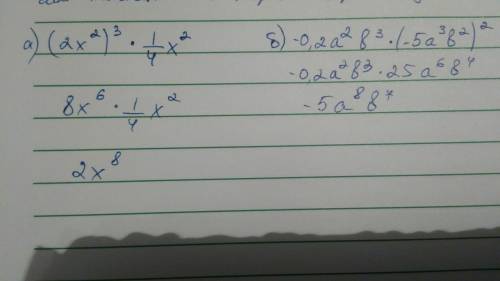 а) (2x²)³ · 1/4 x²
8x⁶ · 1/4 x²
2x⁸
б) -0,2a²b³ · (-5a³b²)²
-0,2a²b³ · 25a⁶b⁴
-5a⁸b⁷